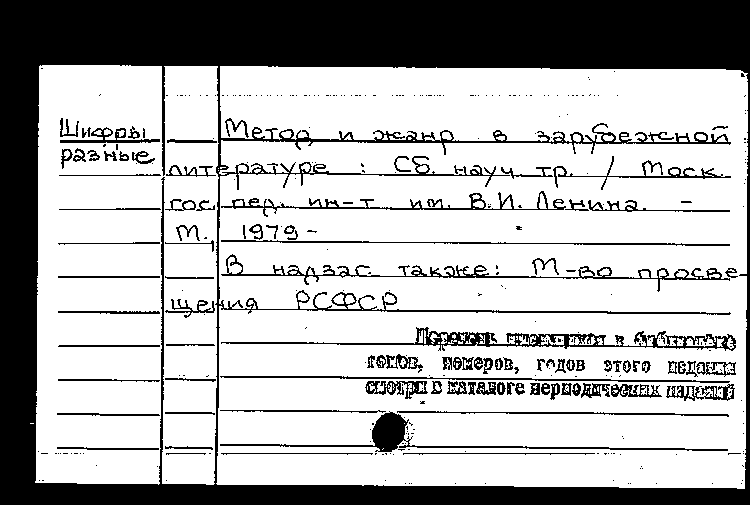 Шифры
разные
Метод и жанр в зарубежной
литературе : Сб. науч тр. / Моск.
гос. пед. ин-т им. В.И. Ленина. -
М., 1979-
В надзаг. также: М-во просве-
щения РСФСР
Перечень имеющихся в библиотеке
томов, номеров, годов этого издания
смотри в каталоге периодических изданий